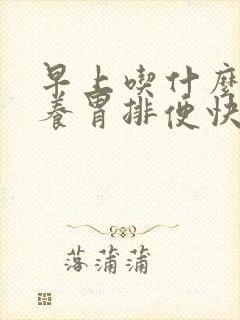 早上喫什麼
養胃排便快
落蒲蒲